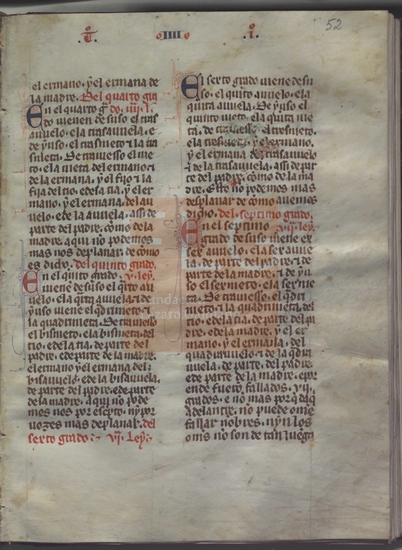 52
IIII
el ermano. y el ermana de
la madre. Del quarto gra
En el quarto gr̃do. iiii. l.
do uienen de suso el tras
auuelo. e la trasauuela. e
de yuso. el trasnieto. i la tra
snieta. De trauiesso el nie
to. e la nieta del ermano. i
de la ermana. y el fijo. i la
fija del tio. e de la tia. y el er
mano. y el ermana. del au
uelo. e de la auuela. assi de
parte del padre. como de la
madre. aqui no podemos
mas nos deplanar. de como
es dicho. del quinto grado.
En el quinto grado. v. ley.
uiene de suso el
uelo.
yuso uiene
la De trauiesso
el bisnieto. e la bisnieta. del
tio. e de la tia. de parte del
padre. e de parte de la madre.
el ermano y el ermana del
bisauuelo. e de la bisauuela.
de parte del padre. e de parte
de la madre. aqui no pode
mos nos por escripto. ny por
uozes mas deplanar. del
sexto grado. vi. ley.
En sexto grado uiene de su
so. el quinto auuelo. e la
quinta auuela. De yuso. el
quinto nieto. e la quinta nie
ta. de trauiesso. el trasnieto.
e la trasnieta. y el ermano.
y el ermana del trasauuelo
de la trasauuela. assi de par
te del padre. como de la ma
dre. esto no podemos mas
desplanar de como auemos
dicho. del septimo grado.
En el septimo vii. ley.
grado de suso uiene el se
ser auuelo. e la ser auue
la. de parte del padre. i de
parte de la madre. i de yu
so el sernieto. e la sernie
ta. De trauiesso. el
nieto. i la nieta. del
tio. e de la tia. de parte del pa
dre. e de la madre. y el er
mano. y el ermana. del
auuelo. i de la
uela. de parte. del padre.
e de parte de la madre. e por
ende fuero. fallados. vii.
grados. e no mas por q̃ daq̃
adelantre. no puede ome
fallar nobres. ny los
om̃s no son de tan luengo